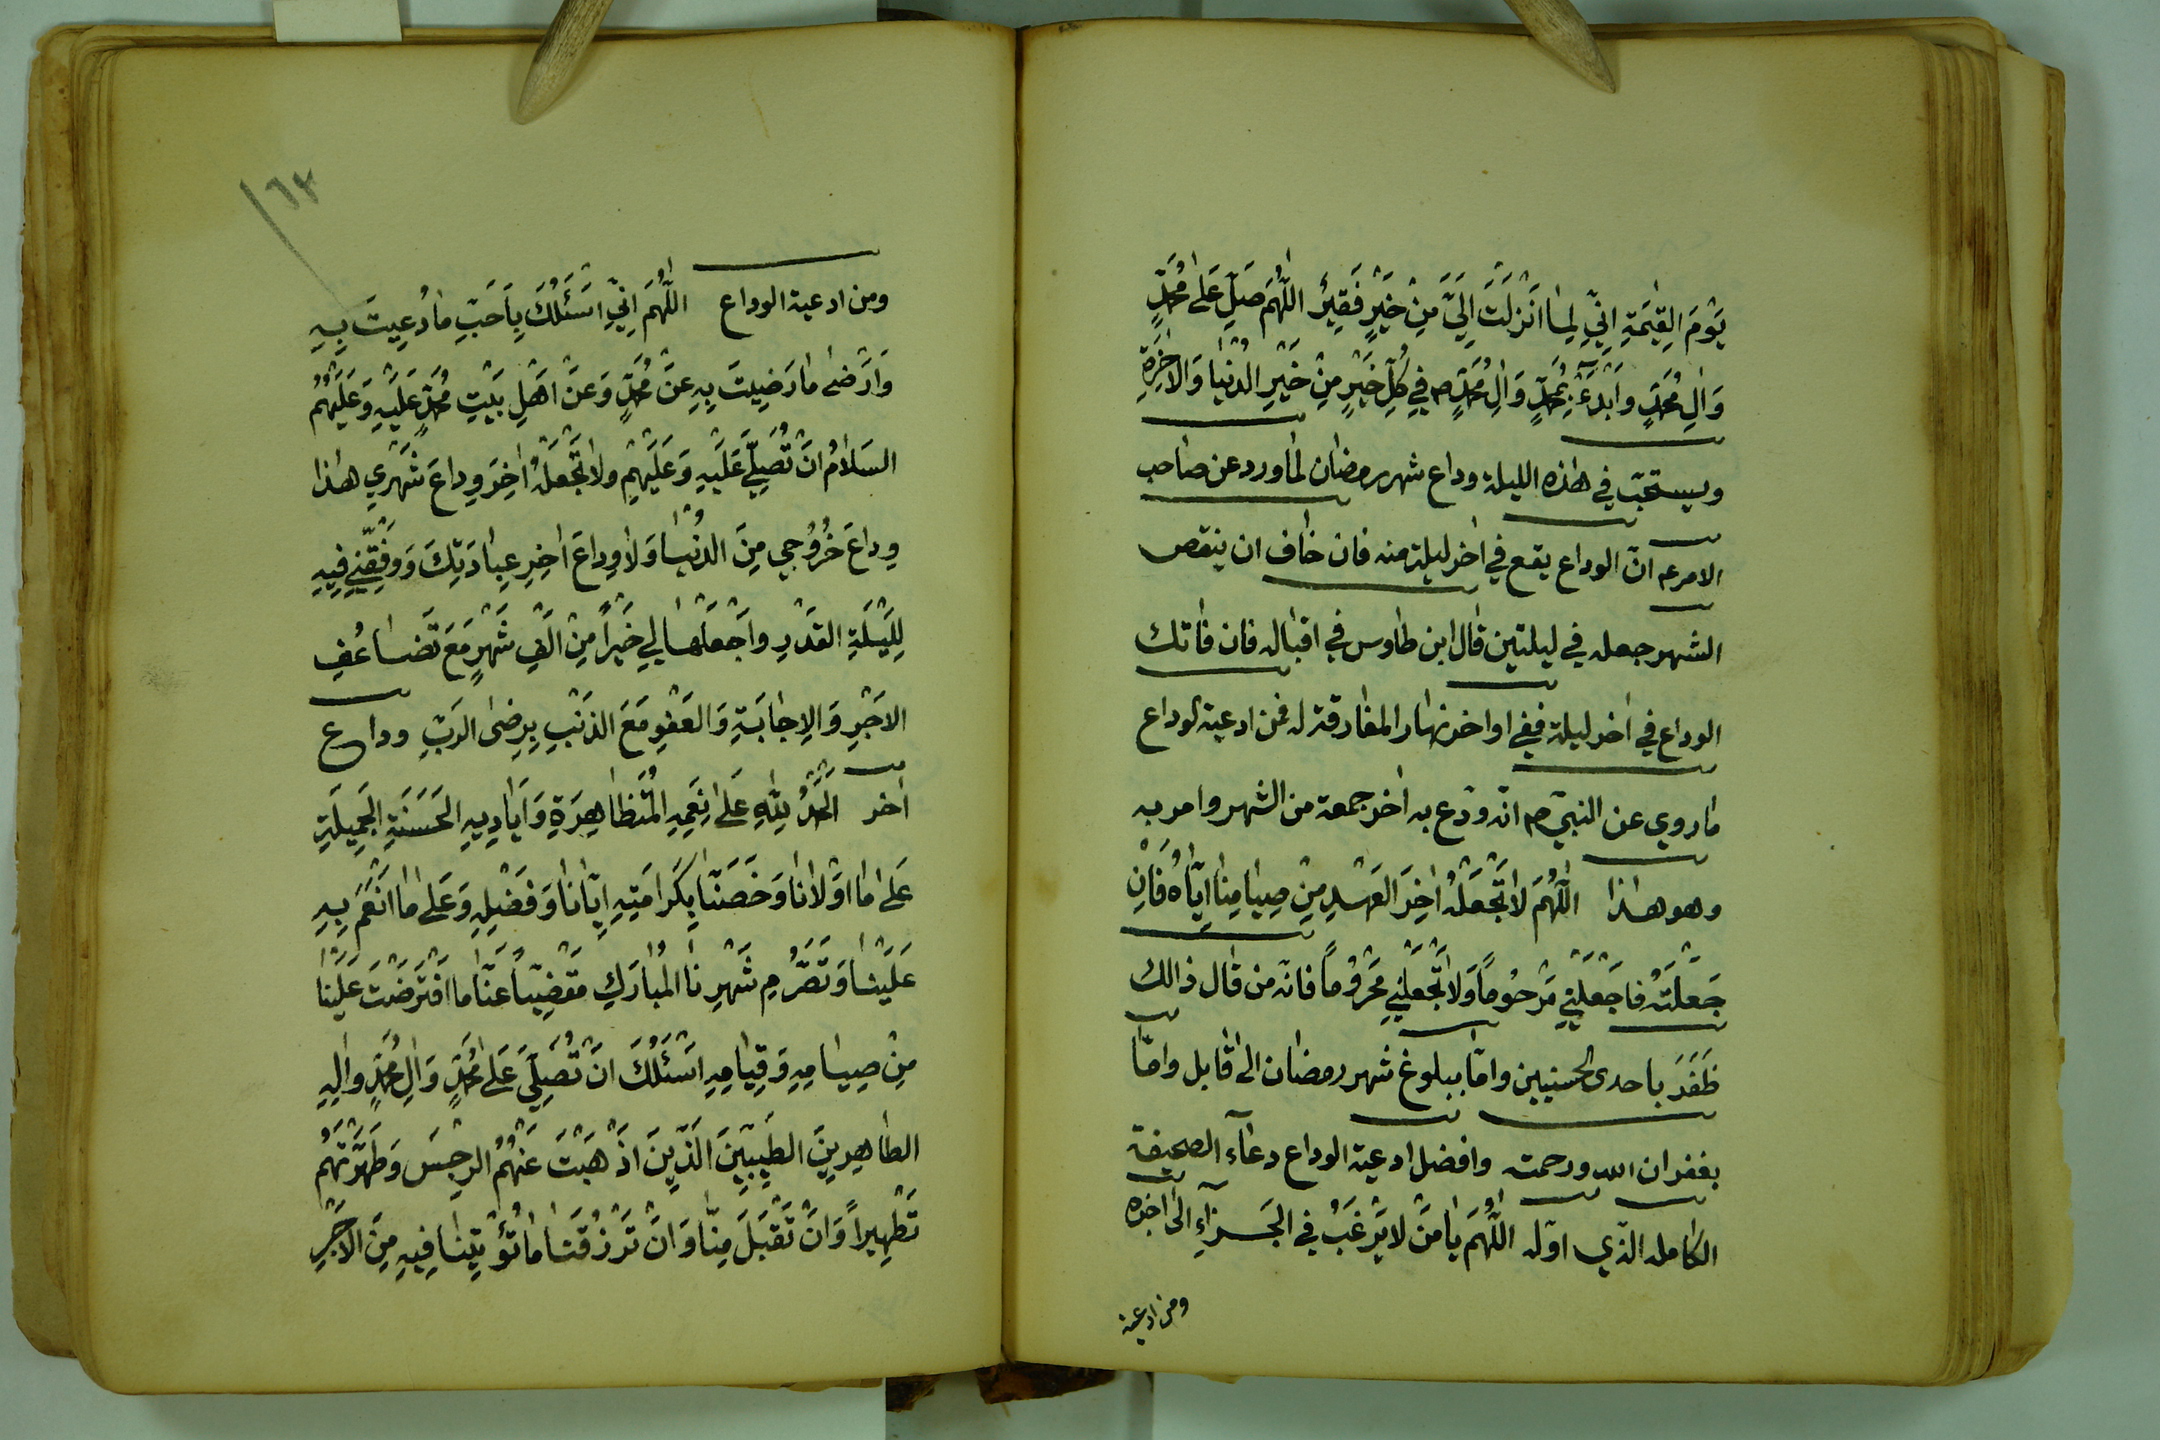 يَوْمَ الْقِيٰمَةِ اِنِّي لِمٰا اَنْزَلْتَ اِلَيَّ مِنْ خَيْرٍ فَقِيْرٌ اَللّٰهُمَ صَلِّ عَلىٰ مُحَمَّدٍ
وَاٰلِ مُحَمَّدٍ وابْدَءْ بِمُحَمَّدٍ وَاٰلِ مُحَمَّدٍ ص فِي كُلِّ خَيْرٍ مِنْ خَيْرِ الدُنْيٰا وَالاٰخِرَةِ
ويستحبّ في هٰذه الليلة وداع شهر رمضٰان لمٰا ورد عن صٰاحب
الامر ع انّ الوداع يقع في اٰخر ليلة منه فان خٰاف ان ينقص
الشهر جعله في ليلتين قٰال ابن طٰاوس في اقبٰاله فان فٰاتك
الوداع في اٰخر ليلة ففي اواخر نهٰار المفٰارقة له فمن ادعية الوداع
مٰا روي عن النبيّ ص انّه ودّع به اٰخر جمعة من الشهر وامر به
وهو هٰذا اَللّٰهُمَ لاٰ تَجْعَلْهُ اٰخِرَ العَهْدِ مِنْ صِيٰامِنٰا اِيّٰاهُ فَاِنْ
جَعَلْتَهُ فٰاجْعَلْنِي مَرْحُوماً وَلاٰ تَجْعَلْنِي مَحْرُوماً فانّه من قٰال ذالك
ظَفَرَ باحدى الحسنيين وامّا ببلوغ شهر رمضٰان الىٰ قٰابل وامّا
بغفران الله ورحمته وافضل ادعية الوداع دعٰآء الصحيفة
الكٰامله الذّي اوّله اَللّٰهُمَ يٰا مَنْ لا يَرْغَبُ فِي الجَزٰاءِ الىٰ اٰخره
ومن ادعية
١٦٣
ومن ادعية الوداع اَللّٰهُمَ اِنِّي اَسْئَلُكَ بِاَحَبِّ مٰا دُعِيتَ بِهِ
وَاَرْضىٰ مٰا رَضِيتَ بِهِ عَنْ مُحَمَّدٍ وَعَنْ اَهْلِ بَيْتِ مُحَمَّدٍ عَلَيْهِ وَعَلَيْهِمُ
السَلاٰمُ اَنْ تُصَلِّيَ عَلَيْهِ وَعَلَيْهِمْ ولاٰ تَجْعَلْهُ اٰخِرَ وِداعَ شَهْرِي هٰذا
وِداعَ خُرُوجِي مِنَ الدُنْيٰا وَلاٰ وِداعَ اٰخِرِ عِبٰادَتِكَ وَوَفِّقْنِي فِيهِ
لِلَيْلَةِ القَدْرِ واجْعَلْهٰا لِي خَيْراً مِنْ اَلْفِ شَهْرٍ مَعَ تَضٰاعُفِ
الاَجْرِ وَالاِجٰابَةِ وَالعَفْوِ مَعَ الذَنْبِ بِرِضىٰ الرَبِّ وداع
اٰخر اَلْحَمْدُ لِلّٰهِ عَلىٰ نِعَمِهِ المُتَظٰاهِرَةِ وَاَيٰادِيهِ الحَسَنَةِ الجَمِيلَةِ
عَلىٰ مٰا اَوْلاٰنٰا وَخَصَّنٰا بِكَرامَتِهِ اِيّٰانٰا وَفَضْلِهِ وَعَلىٰ مٰا اَنْعَمَ بِهِ
عَلَيْنٰا وَتَصَرُّمِ شَهْرِنٰا المُبٰارَكِ مَقْضِيّاً عَنّٰا ما افْتَرَضْتَ عَلَيْنٰا
مِنْ صِيٰامِهِ وَقِيٰامِهِ اَسْئَلُكَ اَنْ تُصَلِّيَ عَلىٰ مُحَمَّدٍ وَاٰلِ مُحَمَّدٍ واٰلِهِ
الطٰاهِرِينَ الطَيِّبِيِنَ الَذِّينَ اَذْهَبْتَ عَنْهُمُ الرِجْسَ وَطَهَّرْتَهُمْ
تَطْهِيراً وَاَنْ تَقْبَلَ مِنّٰا وَاَنْ تَرْزُقَنٰا مٰا تُؤْتِينٰا فِيهِ مِنَ الاَجْرِ